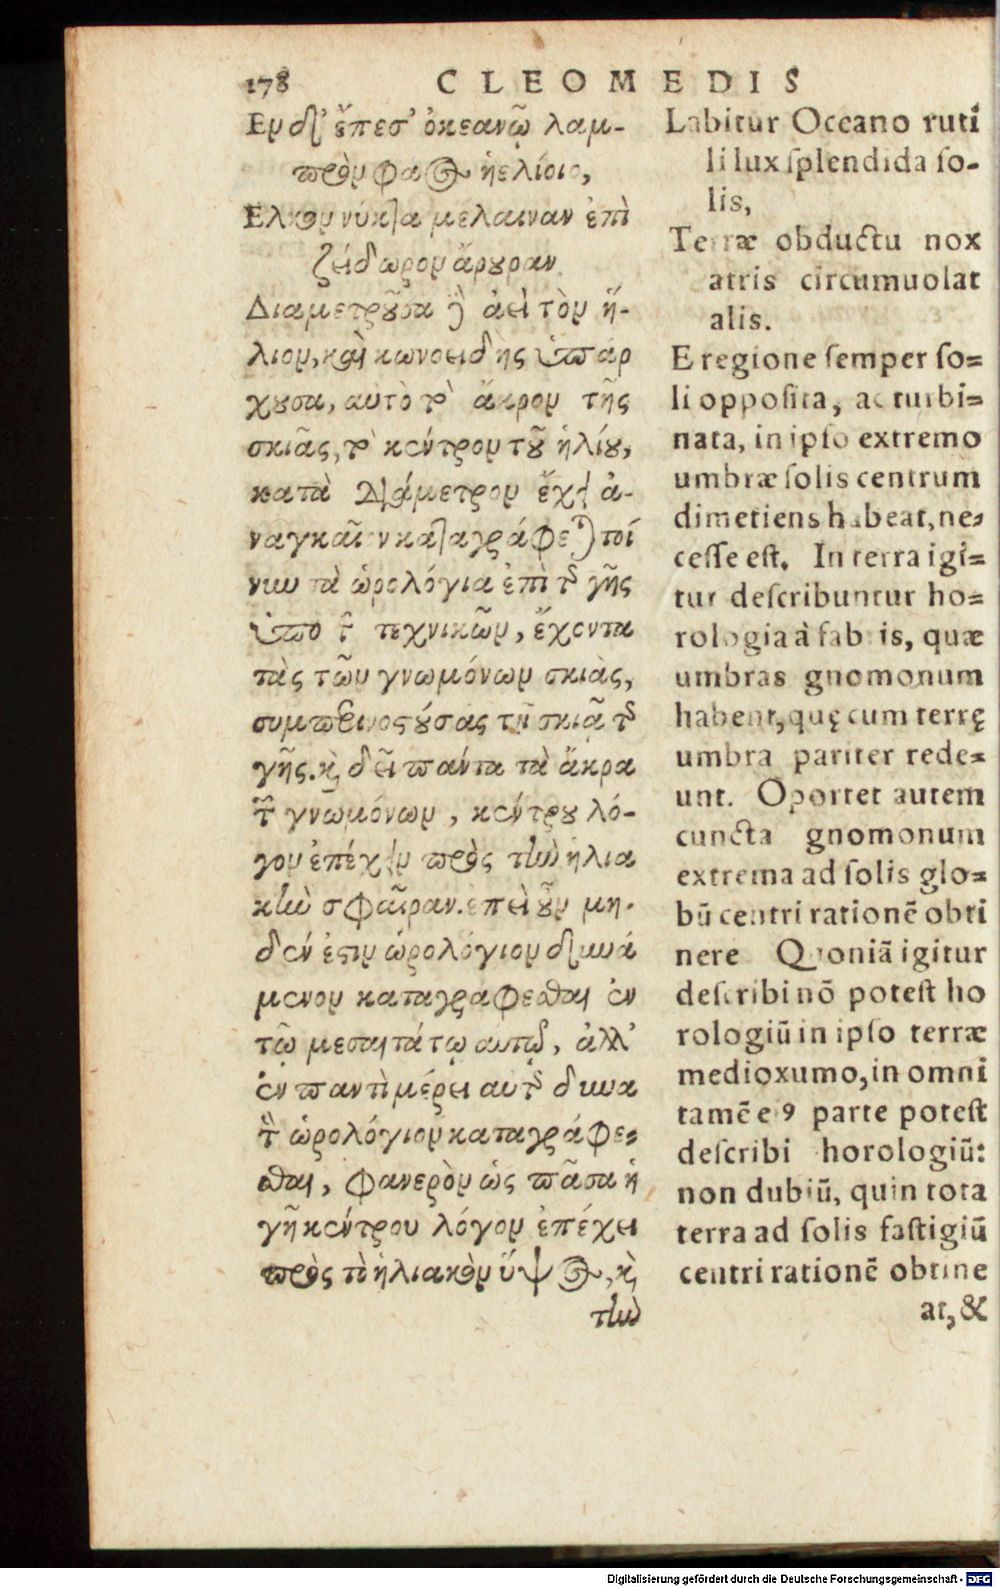 178 CLEOMEDIS
Ἐν δ' ἔπεσ' ὀκεανῷ λαμ-
πρὸν φάος ἠελίοιο,
Ἕλκον νύκτα μελαιναν ἐπὶ
ζείδωρον ἄρουραν.
Διαμετροῦσα γὰρ ἀεὶ τὸν ἥ-
λιον, καὶ κωνοειδὴς ὑπάρ
χουσα, αὐτὸ τὸ ἄκρον τῆς
σκιᾶς, τὸ κέντρον τοῦ ἡλίου,
κατὰ διάμετρον ἔχειν ἀ-
ναγκαῖον καταγράφεται τοί
νυν τὰ ὡρολόγια ἐπὶ τῆς γῆς
ὑπὸ τῶν τεχνικῶν, ἔχοντα
τὰς τῶν γνωμόνων σκιὰς,
συμπερινοστούσας τῇ σκιᾷ τῆς
γῆς. καὶ δεῖ πάντα τὰ ἄκρα
τῶν γνωμόνων, κέντρου λό-
γον ἐπέχειν πρὸς τὴν ἡλια
κὴν σφαῖραν. ἐπεὶ οὖν μη-
δέν ἐστιν ὡρολόγιον δυνά
μενον καταγράφεσθαι ἐν
τῷ μεσαιτάτῳ αὐτῆς, ἀλλ'
ἐν παντὶ μέρει αὐτῆς δυνα
τὸν ὡρολόγιον καταγράφε-
σθαι, φανερὸν ὡς πᾶσα ἡ
γῆ κέντρου λόγον ἐπέχει
πρὸς τὸ ἡλιακὸν ὕψος, καὶ
τὴν
Labitur Oceano ruti
li lux splendida so-
lis,
Terræ obductu nox
atris circumuolat
alis.
E regione semper so=
li opposita, ac turbi=
nata, in ipso extremo
umbræ solis centrum
dimetiens habeat, ne=
cesse est. In terra igi=
tur describuntur ho=
rologia à fabris, quæ
umbras gnomonum
habent, quę cum terrę
umbra pariter rede=
unt. Oportet autem
cuncta gnomonum
extrema ad solis glo=
bū centri rationē obti
nere Quoniā igitur
describi nō potest ho
rologiū in ipso terræ
medioxumo, in omni
tamē eiꝰ parte potest
describi horologiū:
non dubiū, quin tota
terra ad solis fastigiū
centri rationē obtine
at, &
Digitalisierung gefördert durch die Deutsche Forschungsgemeinschaft - DFG